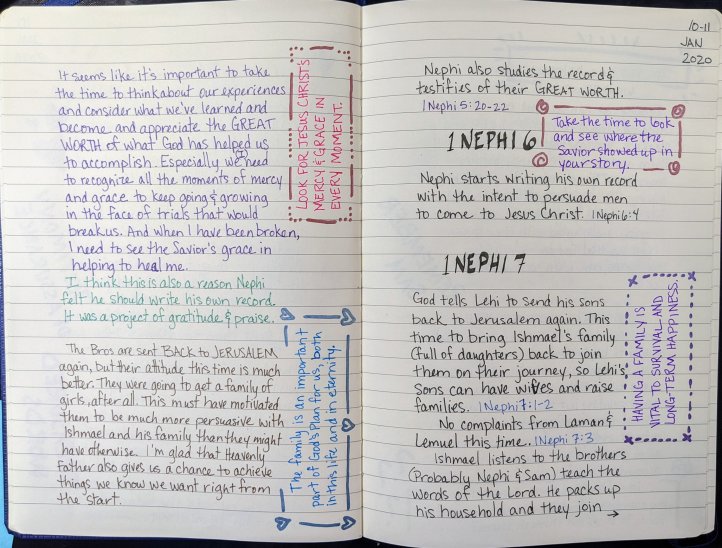 It seems like it's important to take
the time to think about our experiences
and consider what we've learned and
become and appreciate the GREAT
WORTH of what God has helped us
to accomplish. Especially we (I) need
to recognize all the moments of mercy
and grace to keep going & growing
in the face of trials that would
break us. And when I have been broken,
I need to see the Savior's grace in
helping to heal me.
I think this is also a reason Nephi
felt he should write his own record.
It was a project of gratitude & praise.
LOOK FOR JESUS CHRIST'S
MERCY & GRACE IN
EVERY MOMENT.
The Bros are sent BACK to JERUSALEM
again, but their attitude this time is much
better. They were going to get a family of
girls, after all. This must have motivated
them to be much more persuasive with
Ishmael and his family than they might
have otherwise. I'm glad that Heavenly
Father also gives us a chance to achieve
things we know we want right from
the start.
The family is an important
part of God's Plan for us, both
in this life and in eternity.
10-11
JAN
2020
Nephi also studies the record &
testifies of their GREAT WORTH.
1 Nephi 5:20-22
1 NEPHI 6
Take the time to look
and see where the
Savior showed up in
your story.
Nephi starts writing his own record
with the intent to persuade men
to come to Jesus Christ. 1 Nephi 6:4
1 NEPHI 7
God tells Lehi to send his sons
back to Jerusalem again. This
time to bring Ishmael's family
(full of daughters) back to join
them on their journey, so Lehi's
sons can have wives and raise
families. 1 Nephi 7:1-2
No complaints from Laman &
Lemuel this time. 1 Nephi 7:3
Ishmael listens to the brothers
(Probably Nephi & Sam) teach the
words of the Lord. He packs up
his household and they join →
HAVING A FAMILY IS
VITAL TO SURVIVAL AND
LONG-TERM HAPPINESS.